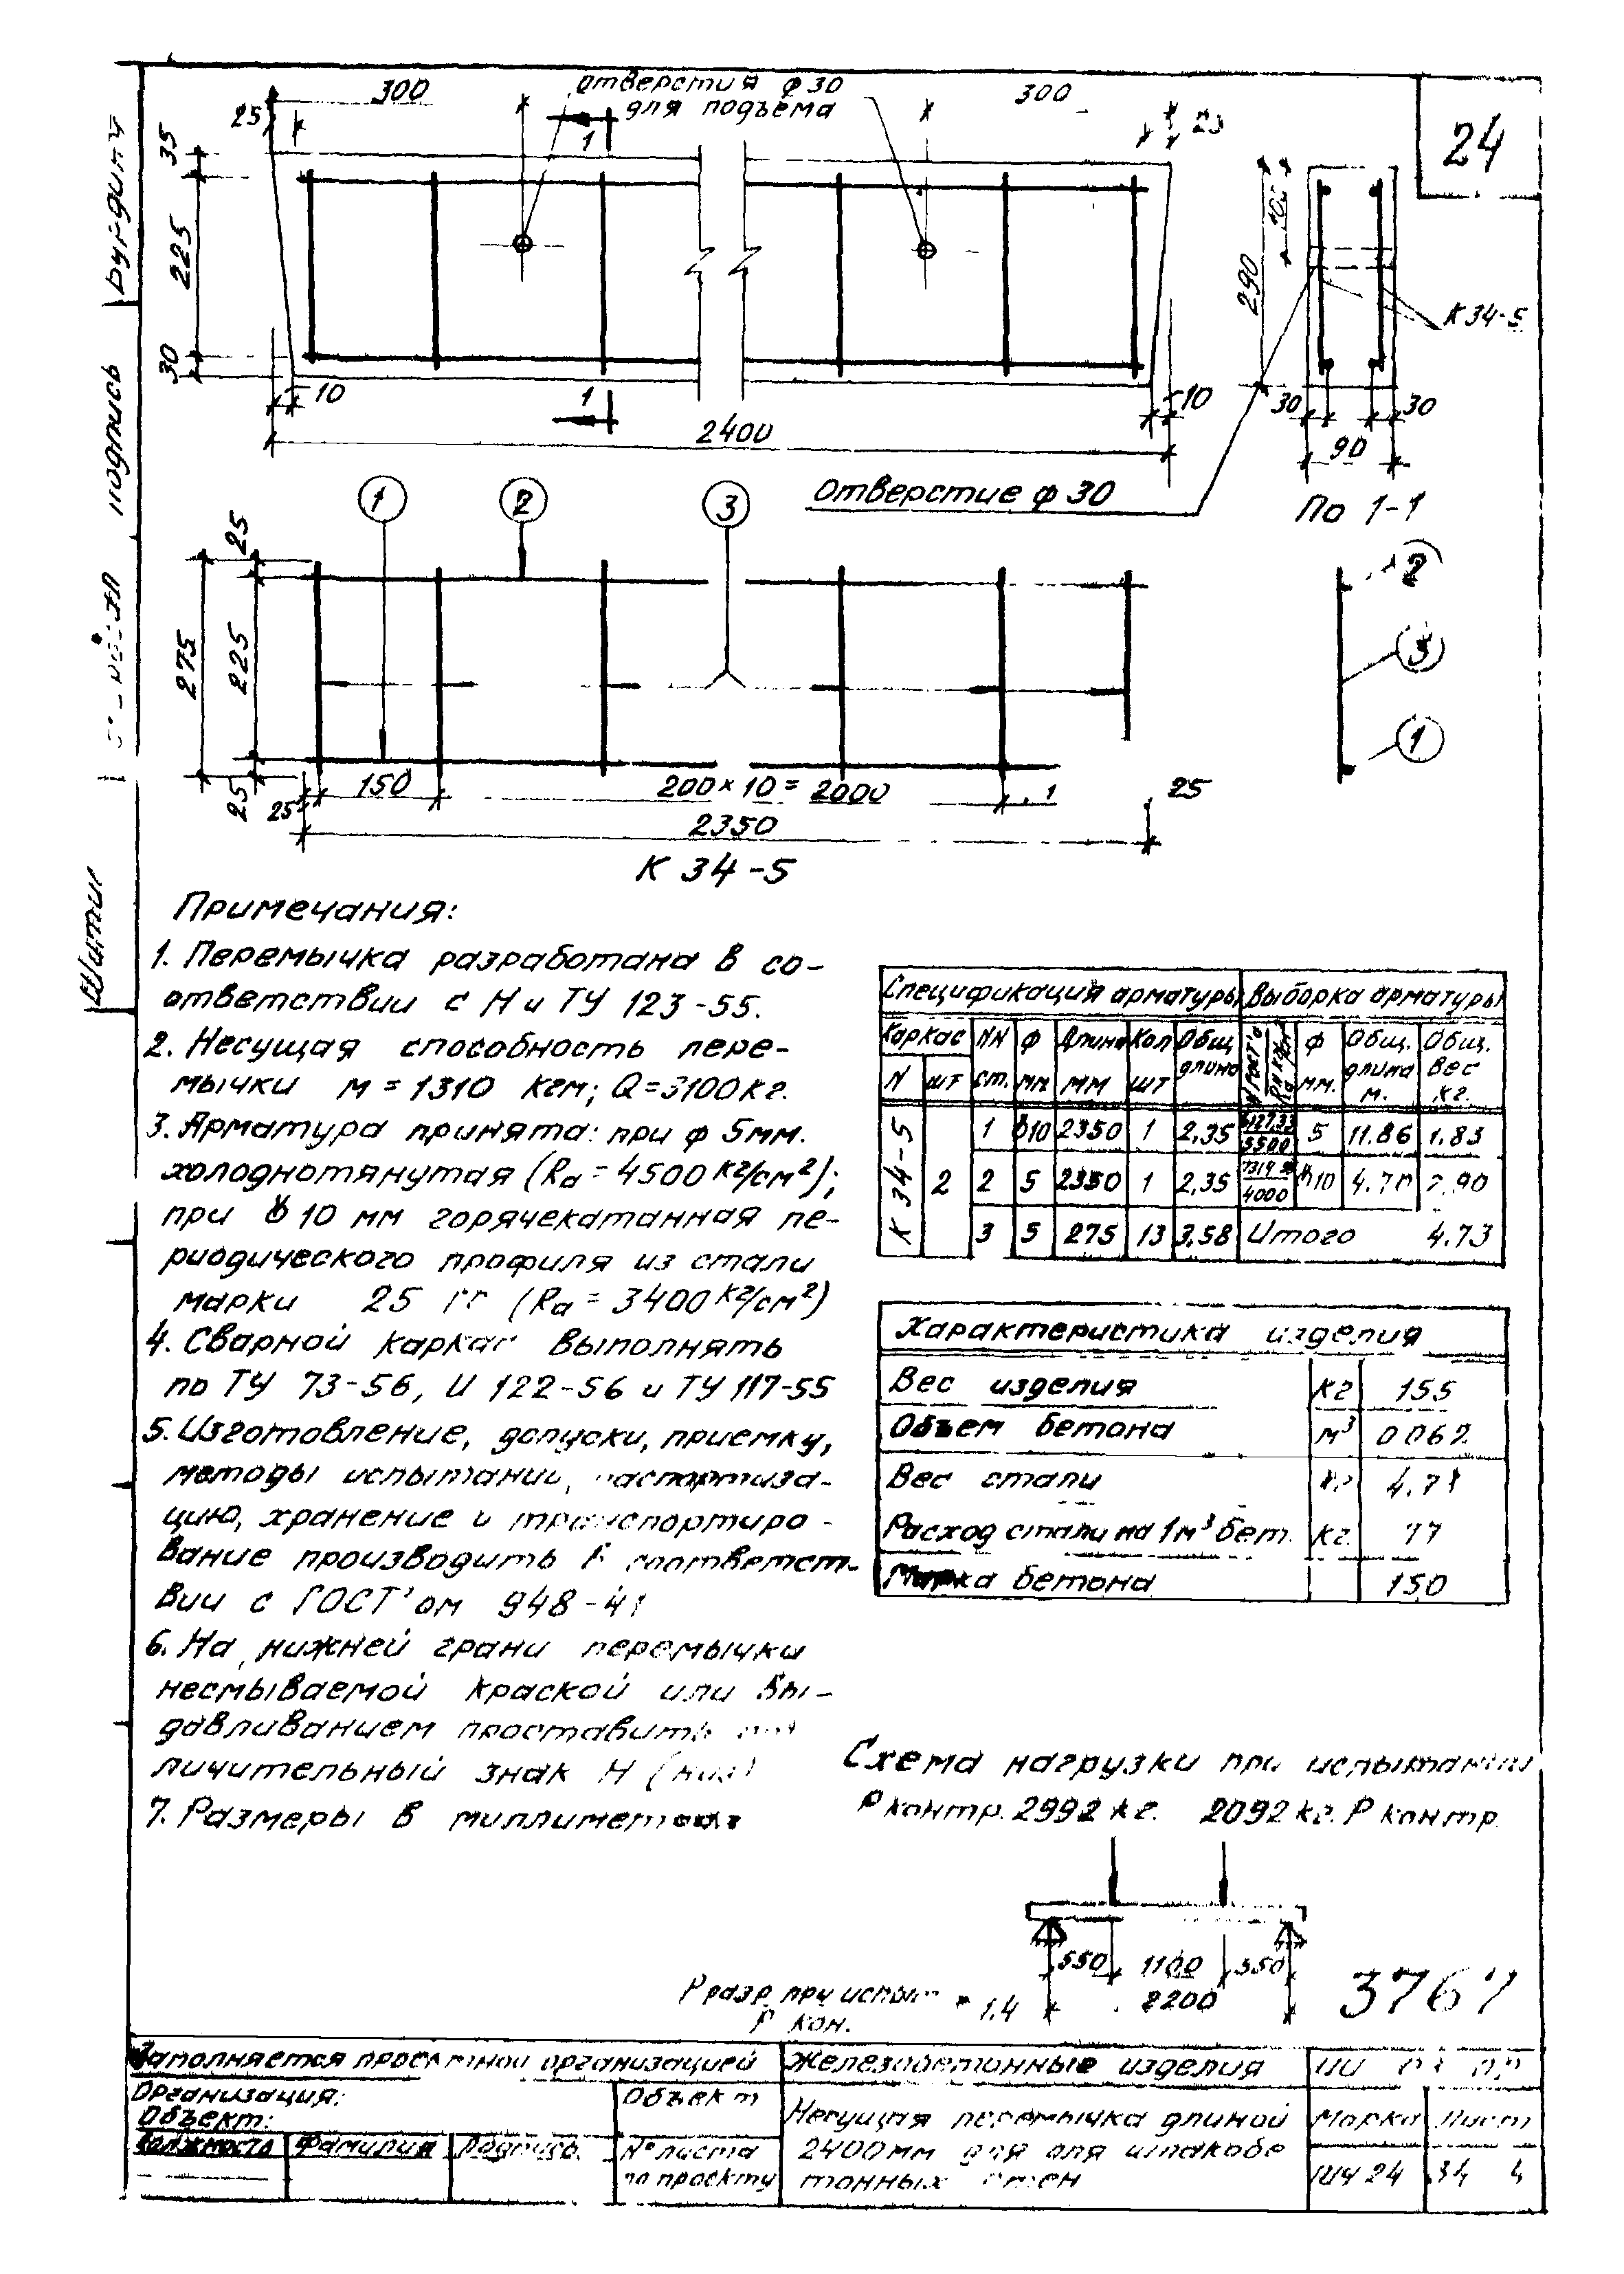 отверстия ф30
для подъёма
300
300
25
24
35
1
225
100
290
К 34-5
30
10
1
10
30
30
2400
90
Отверстие ф 30
По 1-1
подпись
1
2
3
25
2
275
225
3
1
25
25
150
200×10=2000
25
2350
К 34-5
Примечания:
1. Перемычка разработана в со-
ответствии с Н и ТУ 123-55.
2. Несущая способность пере-
мычки м = 1310 кгм; Q=3100кг.
3. Арматура принята: при ф 5мм.
холоднотянутая (Ra = 4500 кг/см²);
при 10 мм горячекатанная пе-
риодического профиля из стали
марки 25 (Ra = 3400 кг/см²)
4. Сварной каркас выполнять
по ТУ 73-56, И 122-56 и ТУ 117-55
5. Изготовление, допуски, приемку,
методы испытании,
цию, хранение и транспортиро-
вание производить в соответст-
вии с ГОСТ'ом 948-41
6. На нижней грани перемычки
несмываемой краской или вы-
давливанием проставить
личительный знак Н (низ)
7. Размеры в миллиметрах
Спецификация арматуры Выборка арматуры
Каркас NN ф Длина Кол Общ. длина ф Общ. длина Общ. вес
N шт ст. мм мм шт мм. м. кг.
К 34-5 2
1 10 2350 1 2,35 5500 5 11.86 1.83
2 5 2350 1 2,35 4000 10 4.70 2.90
3 5 275 13 3,58 Итого 4.73
Характеристика изделия
Вес изделия кг 155
Объем бетона м³ 0062
Вес стали кг 4.73
Расход стали на 1м³ бет. кг. 77
Марка бетона 150
Схема нагрузки при испытании
Р контр. 2992 кг. 2092 кг. Р контр.
550 1100 550
2200
Р разр. при испыт = 1.4
Р кон.
Заполняется проектной организацией
Организация:
Объект:
Объект
Должность Фамилия Подпись.
№ листа
по проекту
Железобетонные изделия
Несущая перемычка длиной
2400мм для для шлакобе
тонных стен
Марка Лист
24 34 4